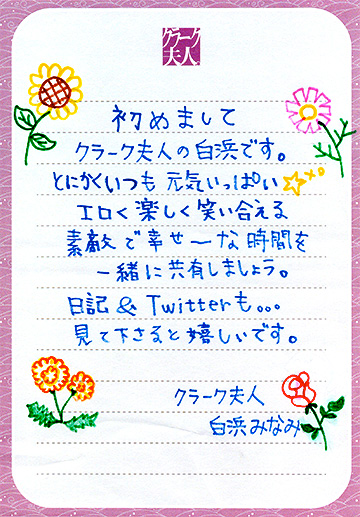 クラーク
夫人
初めまして
クラーク夫人の白浜です。
とにかくいつも元気いっぱい
エロく楽しく笑い合える
素敵で幸せ〜な時間を
一緒に共有しましょう。
日記&Twitterも。。。
見て下さると嬉しいです。
クラーク夫人
白浜みなみ